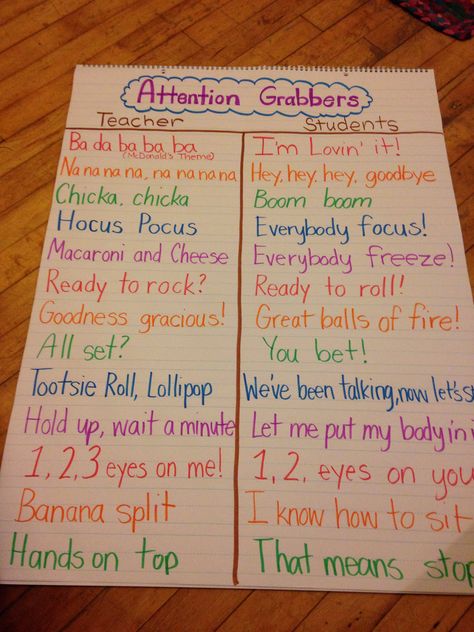 Attention Grabbers
Teacher Students
Ba da ba ba ba I'm Lovin' it!
(McDonald's Theme)
Na na na na, na na na na Hey, hey, hey, goodbye
Chicka, chicka Boom boom
Hocus Pocus Everybody focus!
Macaroni and Cheese Everybody freeze!
Ready to rock? Ready to roll!
Goodness gracious! Great balls of fire!
All set? You bet!
Tootsie Roll, Lollipop We've been talking, now let's
Hold up, wait a minute Let me put my body in
1, 2, 3 eyes on me! 1, 2, eyes on you
Banana split I know how to sit
Hands on top That means stop